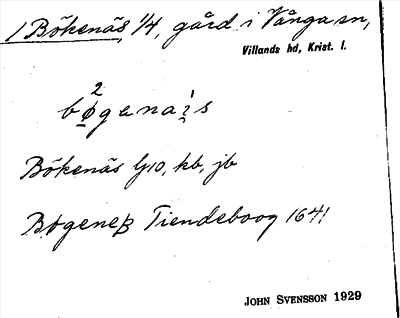 1 Bökenäs, 1/4, gård i Vånga sn,
Villands hd, Krist. l.
2
bøgenais
Bökenäs G10, kb, jb
Bøgeneß Tiendeboog 1641
JOHN SVENSSON 1929